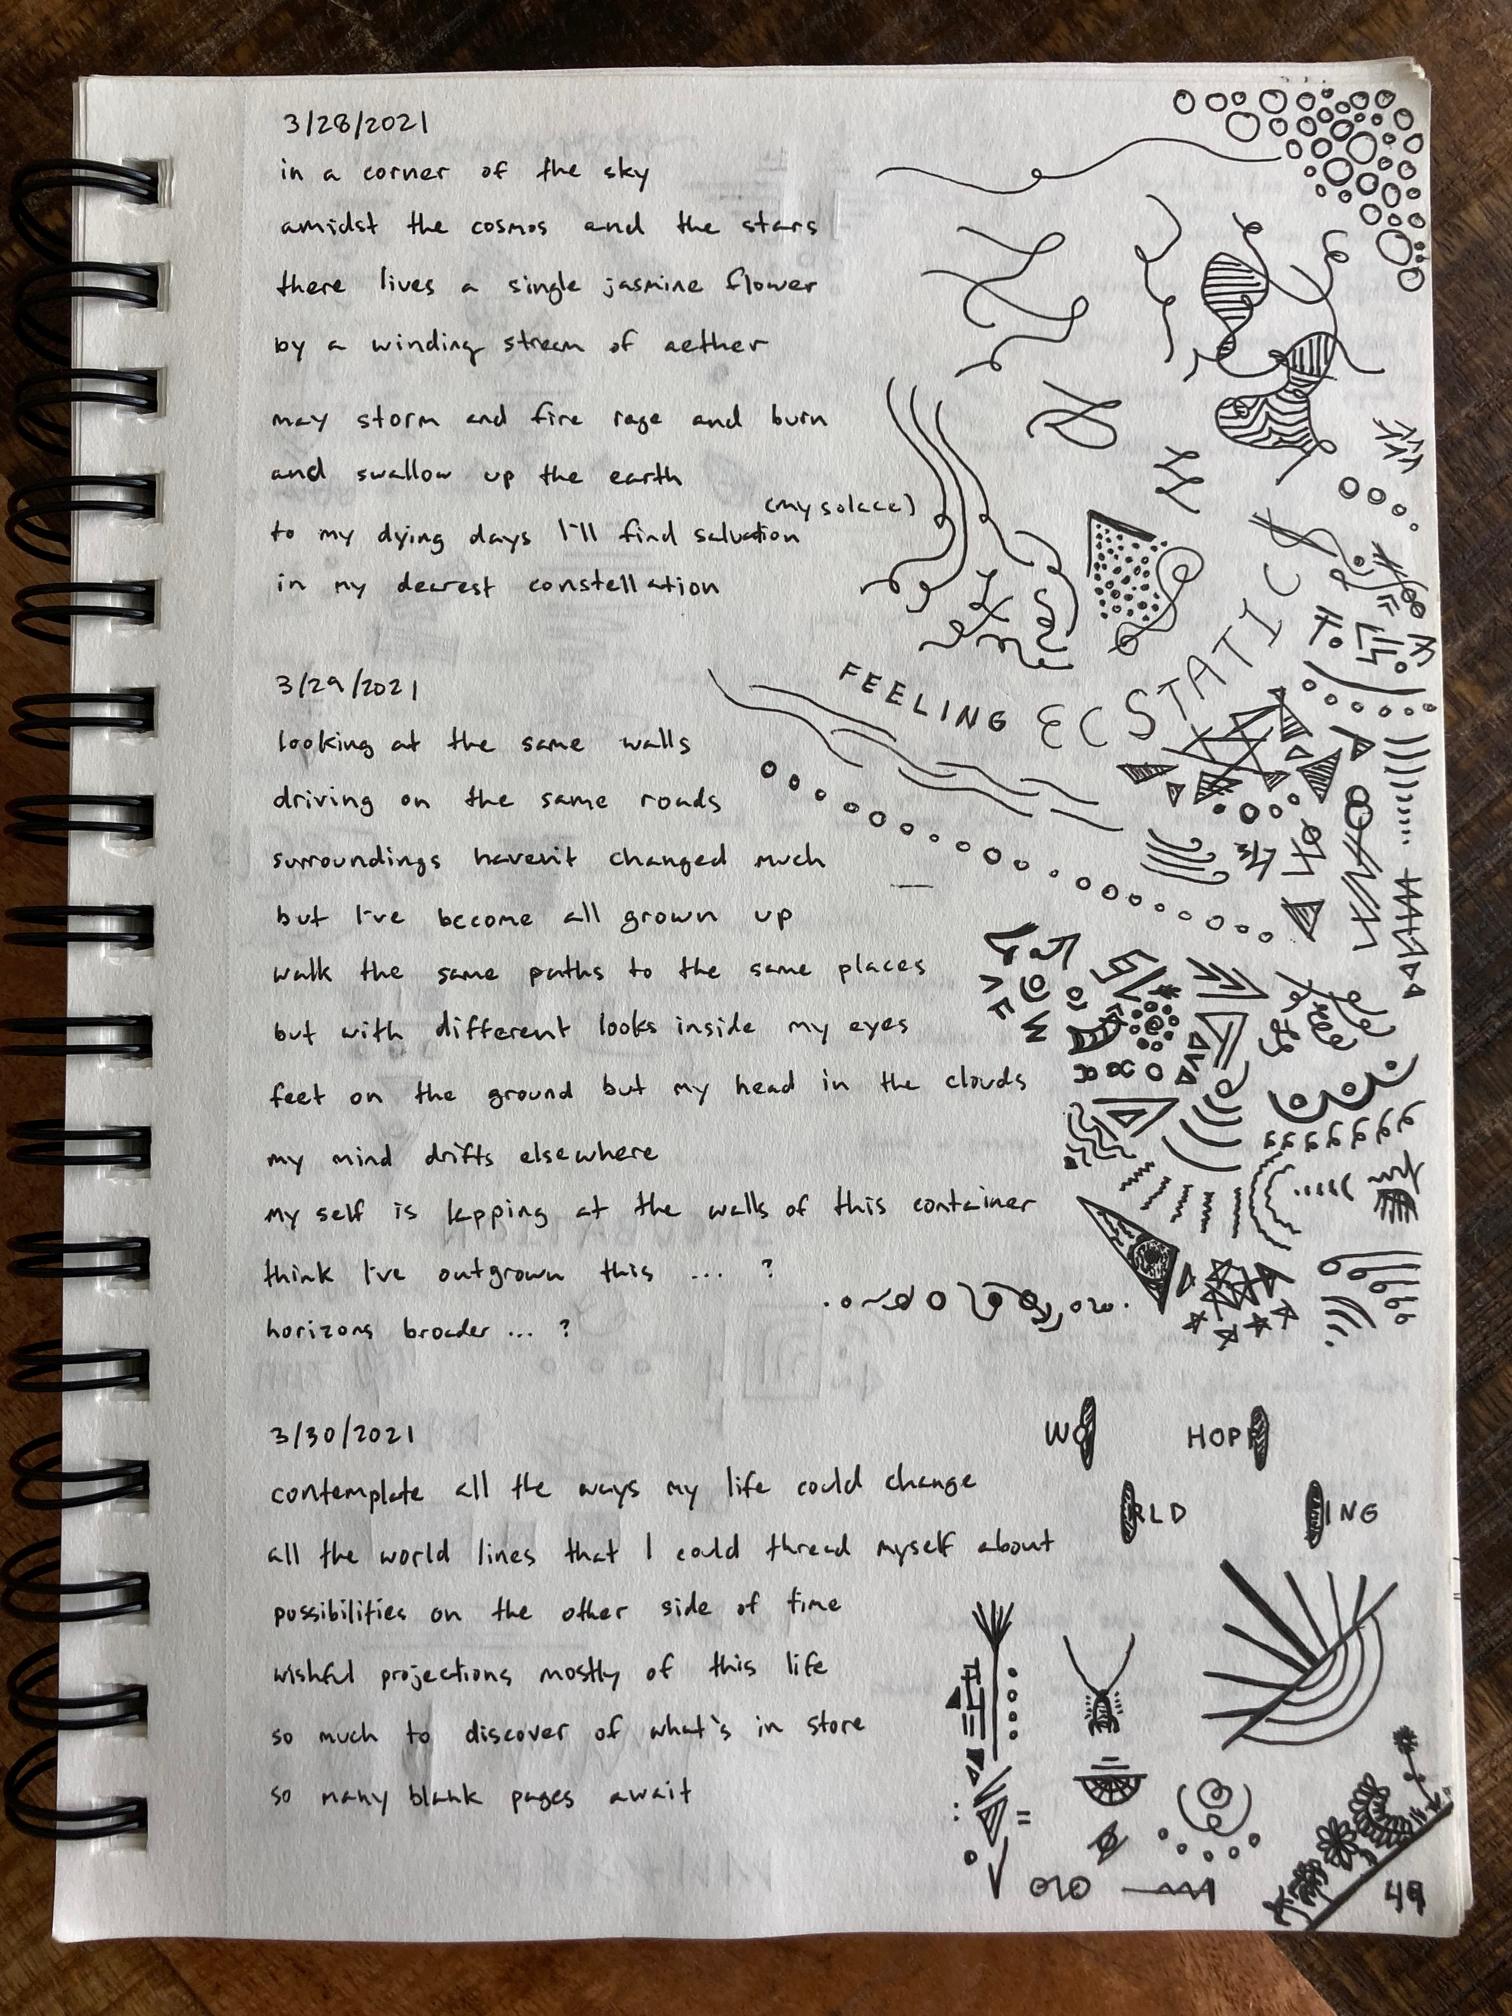 3/28/2021
in a corner of the sky
amidst the cosmos and the stars
there lives a single jasmine flower
by a winding stream of aether
may storm and fire rage and burn
and swallow up the earth
(my solace)
to my dying days I'll find salvation
in my dearest constellation
FEELING ECSTATIC
3/29/2021
looking at the same walls
driving on the same roads
surroundings haven't changed much
but I've become all grown up
walk the same paths to the same places
but with different looks inside my eyes
feet on the ground but my head in the clouds
my mind drifts elsewhere
my self is lapping at the walls of this container
think I've outgrown this ... ?
horizons broader ... ?
3/30/2021
WO HOPP
contemplate all the ways my life could change
RLD ING
all the world lines that I could thread myself about
possibilities on the other side of time
wishful projections mostly of this life
so much to discover of what's in store
so many blank pages await
49